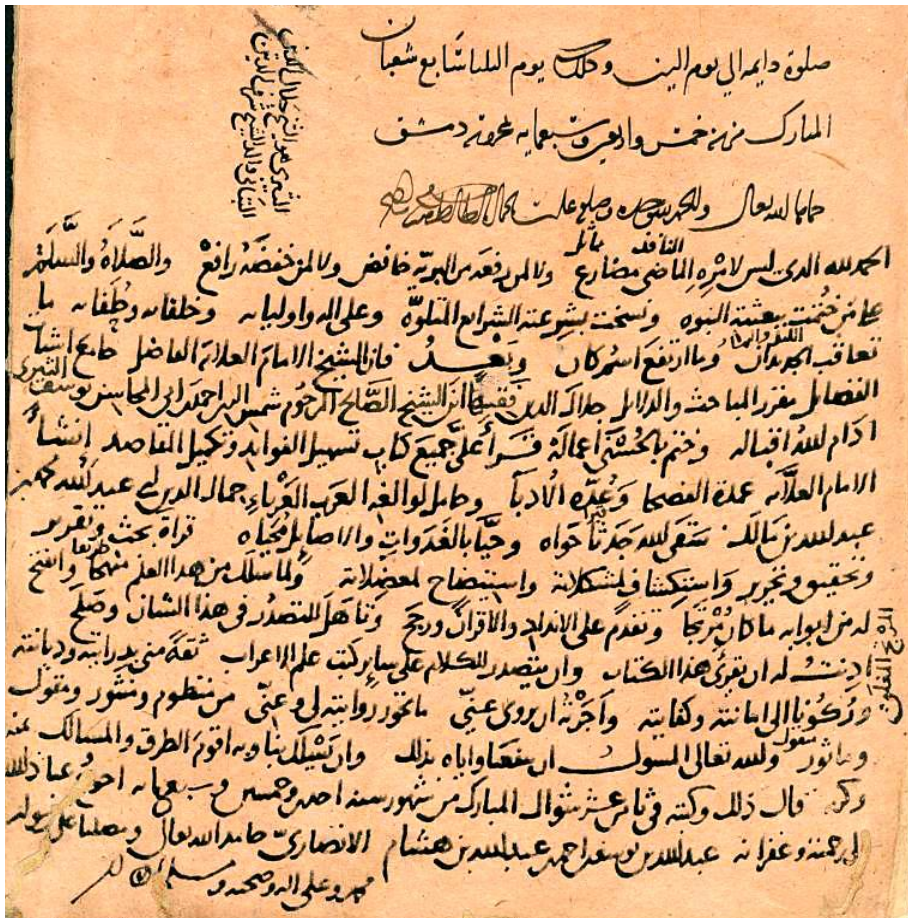 صلوة دايمه الي يوم الدين وذلك يوم الثلثا سابع شعبان
المبارك من سنة خمس واربعين وسبعمايه بمحروسة دمشق
حماها الله تعالى والحمد لله وحده وصلى الله على
التباني والد الشيخ شرف الدين
الحمد لله الذي ليس لامره الماضي مضارع ولا لمن رفعه من البريه خافض ولا لمن خفضه رافع والصلاة والسلم
على من ختمت ببعثته النبوه ونسخت بشرعته الشرايع المتلوة وعلى اله واوليايه وخلفايه وحلفايه ما
تعاقب الجديدان وما ارتفع اسم كان وبعد فان الشيخ الامام العلامة الفاضل جامع اشتات
الفضايل مقرر المباحث والدلايل جلال الدين ابن الشيخ الصالح المرحوم شمس الدين احمد ابي المحاسن يوسف
ادام الله اقباله وختم بالحسنى اعماله قرأ علي جميع كتاب تسهيل الفوايد وتكميل المقاصد إنشاء
الامام العلامه عمدة الفصحا وعدة الادبا وحامل لوا لغه العرب العرباء جمال الدين ابي عبد الله محمد بن
عبد الله بن مالك سقى الله جدثا حواه وحيا بالغدوات والاصايل محياه قراة بحث وتقرير
وتحقيق وتحرير واستكشاف لمشكلاته واستيضاح لمعضلاته ولما سلك من هذا العلم منهجا وافتتح
له من ابوابه ما كان مرتجا وتقدم على الانداد والاقران ورجح وتاهل للتصدر في هذا الشان وصلح
اذنت له ان يقرئ هذا الكتاب وان يتصدر للكلام على ساير كتب علم الاعراب ثقة مني بدرايته وديانته
وركونا الى امانته وكفايته واجزته ان يروي عني ما تجوز روايته لي وعني من منظوم ومنثور ومقول
وماثور والله تعالى المسول ان ينفعنا واياه بذلك وان يسلك بنا وبه اقوم الطرق والمسالك بمنه
وكرمه قال ذلك وكتبه في ثامن عشر شوال المبارك من شهور سنة احدى وخمسين وسبعمايه احوج عباد الله
الى رحمته وغفرانه عبد الله بن يوسف بن احمد بن عبد الله بن هشام الانصاري حامدا لله تعالى ومصليا على رسوله
محمد وعلى اله وصحبه ومسلما